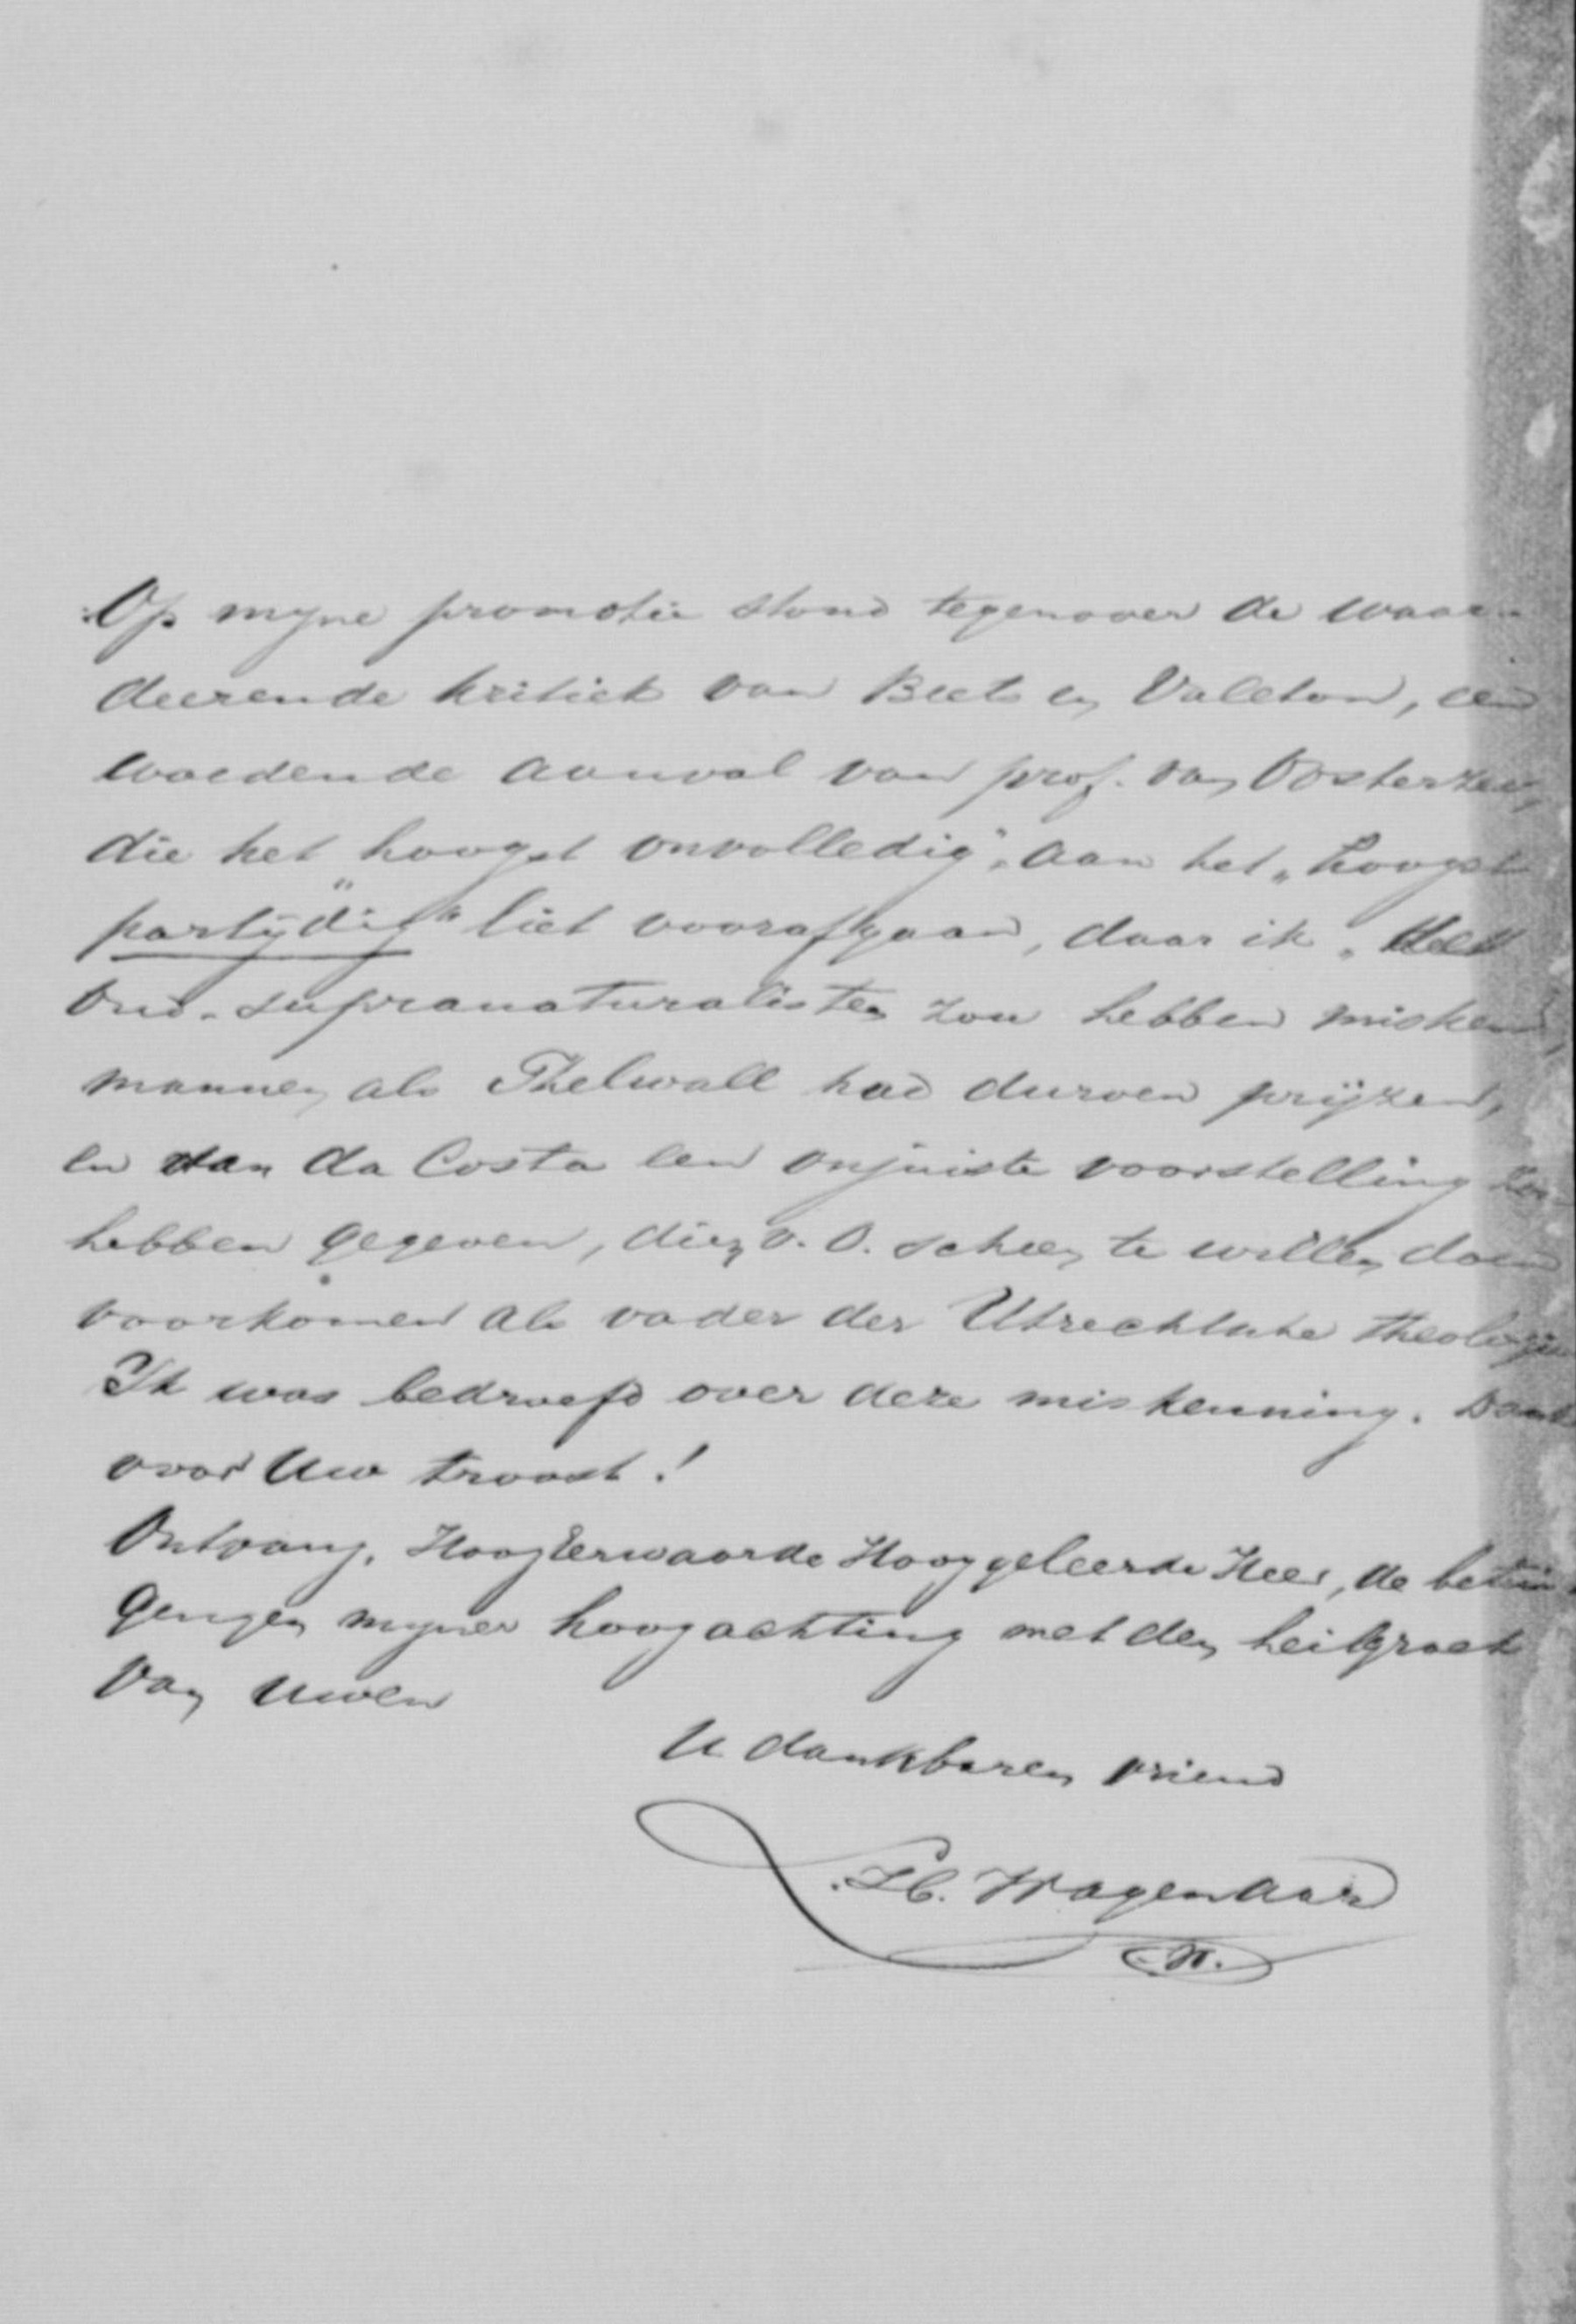 Op mijne promotie stond tegenover de waar-
deerende kritiek van Beets en Valeton, een
woedende aanval van prof. van Oosterzee,
die het "hoogst onvolledig", aan het "hoogst
partijdig" liet voorafgaan, daar ik
oud-supranaturalisten zou hebben misken
mannen als Thelwall had durven prijzen,
en van da Costa een onjuiste voorstelling zou
hebben gegeven, dien v. O. scheen te willen doen
voorkomen als vader der Utrechtsche theologie
Ik was bedroefd over deze miskenning. Dank
voor Uw troost!
Ontvang, HoogEerwaarde Hooggeleerde Heer, de betui
gingen mijner hoogachting met den heilgroet
van Uwen
U dankbaren vriend
L.H. Wagenaar